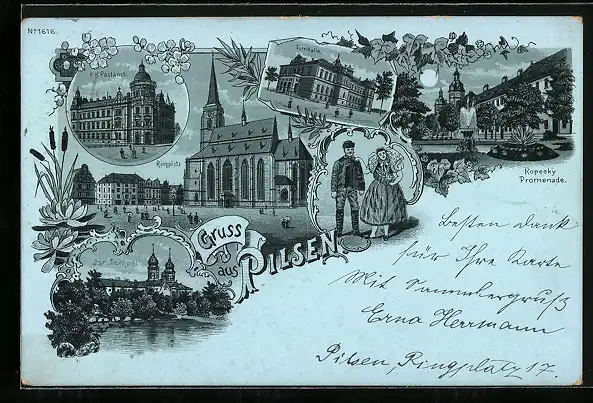 No 1616.
K.K. Postamt.
Turnhalle.
Ringplatz
Kopecky
Promenade.
Gruss
aus PILSEN.
Isr. Tempel
Besten Dank
für Ihre Karte
Mit Sammlergruß
Erna Herrmann
Pilsen, Ringplatz 17.